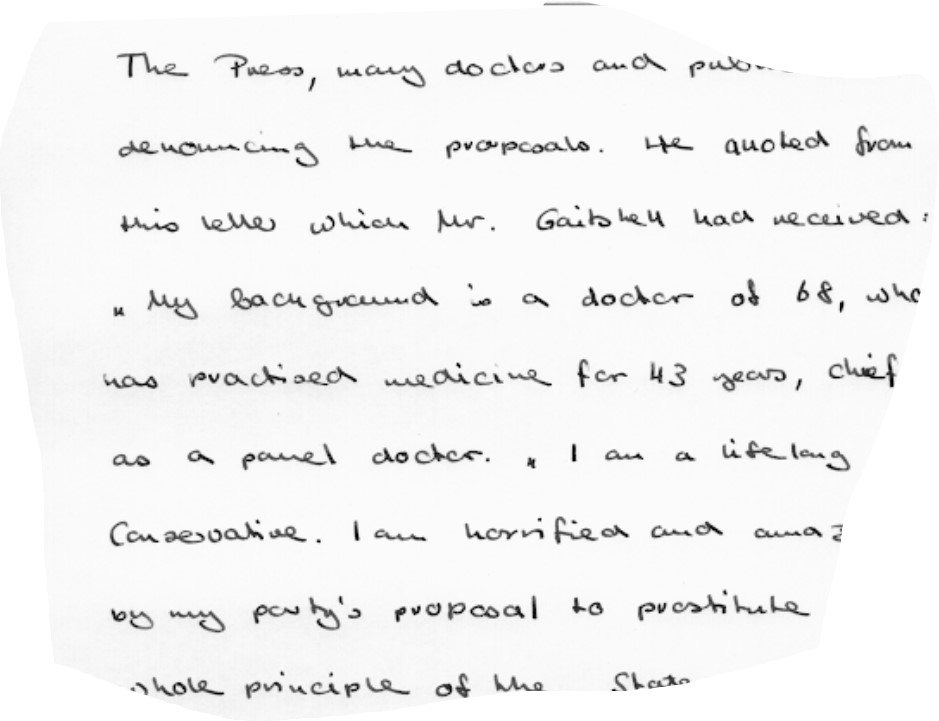 The Press, many doctors and
denouncing the proposals. He quoted from
this letter which Mr. Gaitskell had received:
„ My background is a doctor of 68, who
has practised medicine for 43 years,
as a panel doctor. „ I am a lifelong
Conservative. I am horrified and
by my party's proposal to prostitute
whole principle of the State